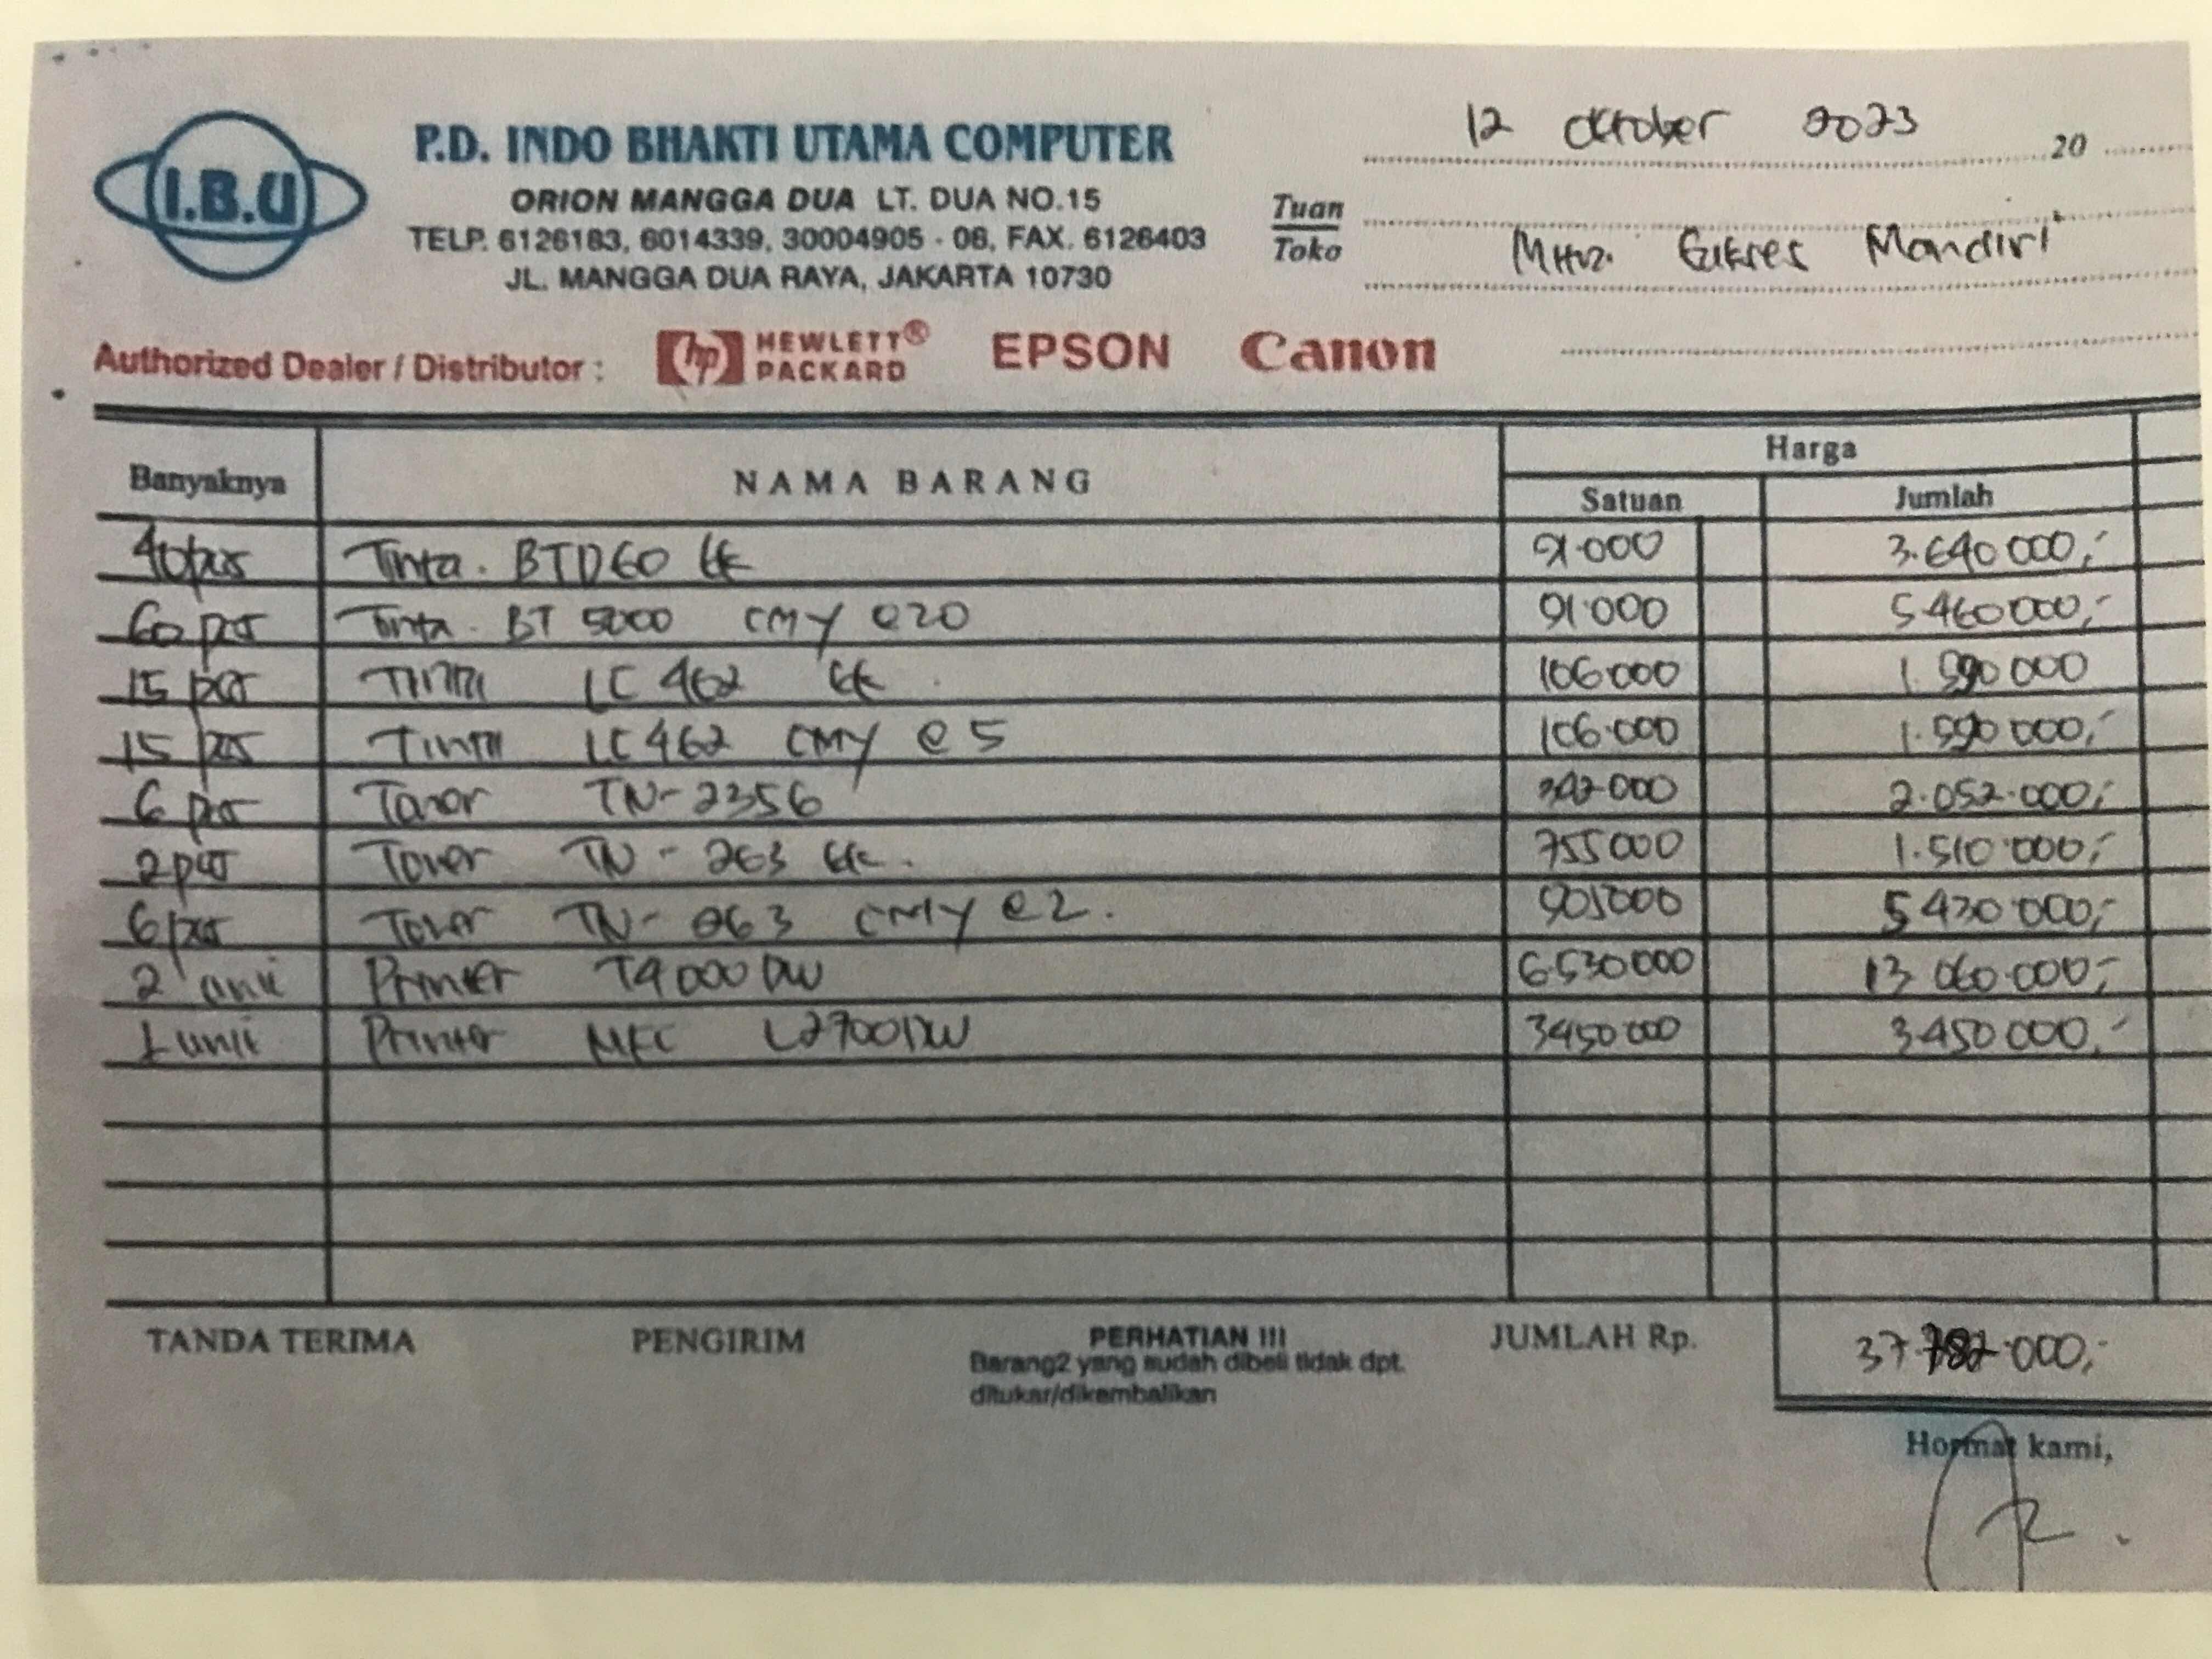 I.B.U
P.D. INDO BHAKTI UTAMA COMPUTER
ORION MANGGA DUA LT. DUA NO.15
TELP. 6126183, 6014339, 30004905 - 06, FAX. 6126403
JL. MANGGA DUA RAYA, JAKARTA 10730
12 Oktober 2023 20
Tuan
Toko
Sukses Mandiri
Authorized Dealer / Distributor : hp HEWLETT® PACKARD EPSON Canon
Banyaknya NAMA BARANG Harga
Satuan Jumlah
40 pcs Tinta. BTD60 91.000 3.640 000,-
60 pcs Tinta. BT 5000 CMY @20 91.000 5.460 000,-
15 pcs Tinta LC 462 106.000 1.590 000
15 pcs Tinta LC 462 CMY @ 5 106.000 1.590 000,-
6 pcs Toner TN-2356 342.000 2.052.000,-
2 pcs Toner TN-263 755 000 1.510.000,-
6 pcs Toner TN-263 CMY @2. 905000 5 430 000,-
2 unit Printer T4000DW 6.530 000 13 060.000,-
1 unit Printer MFC L2700DW 3450 000 3.450 000,-
TANDA TERIMA PENGIRIM PERHATIAN !!! JUMLAH Rp. 37.782.000,-
Barang2 yang sudah dibeli tidak dpt.
ditukar/dikembalikan
Hormat kami,